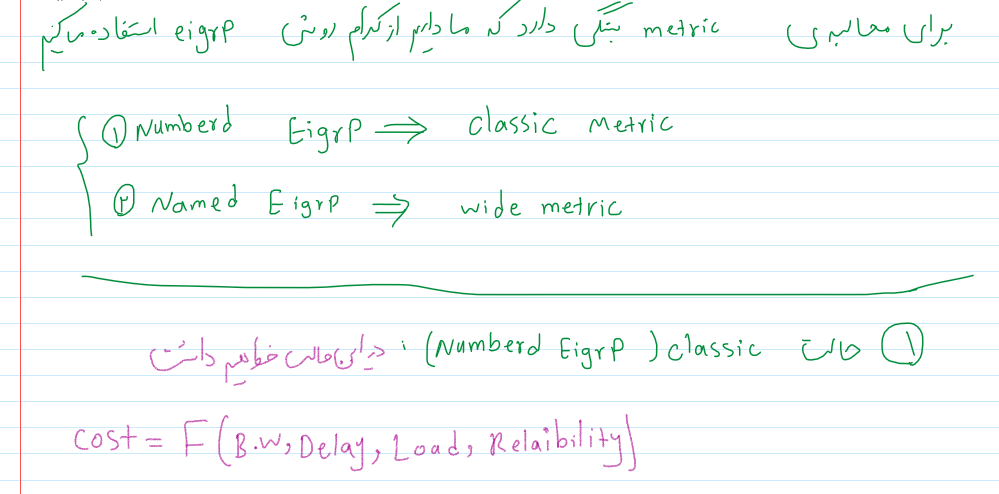 برای محاسبه ی metric بستگی دارد که ما داریم از کدام روش eigrp استفاده میکنیم
① Numberd EigrP ⇒ classic Metric
② Named EigrP ⇒ wide metric
① حالت classic (Numberd EigrP) : در این حالت خواهیم داشت
cost = F(B.W, Delay, Load, Relaibility)